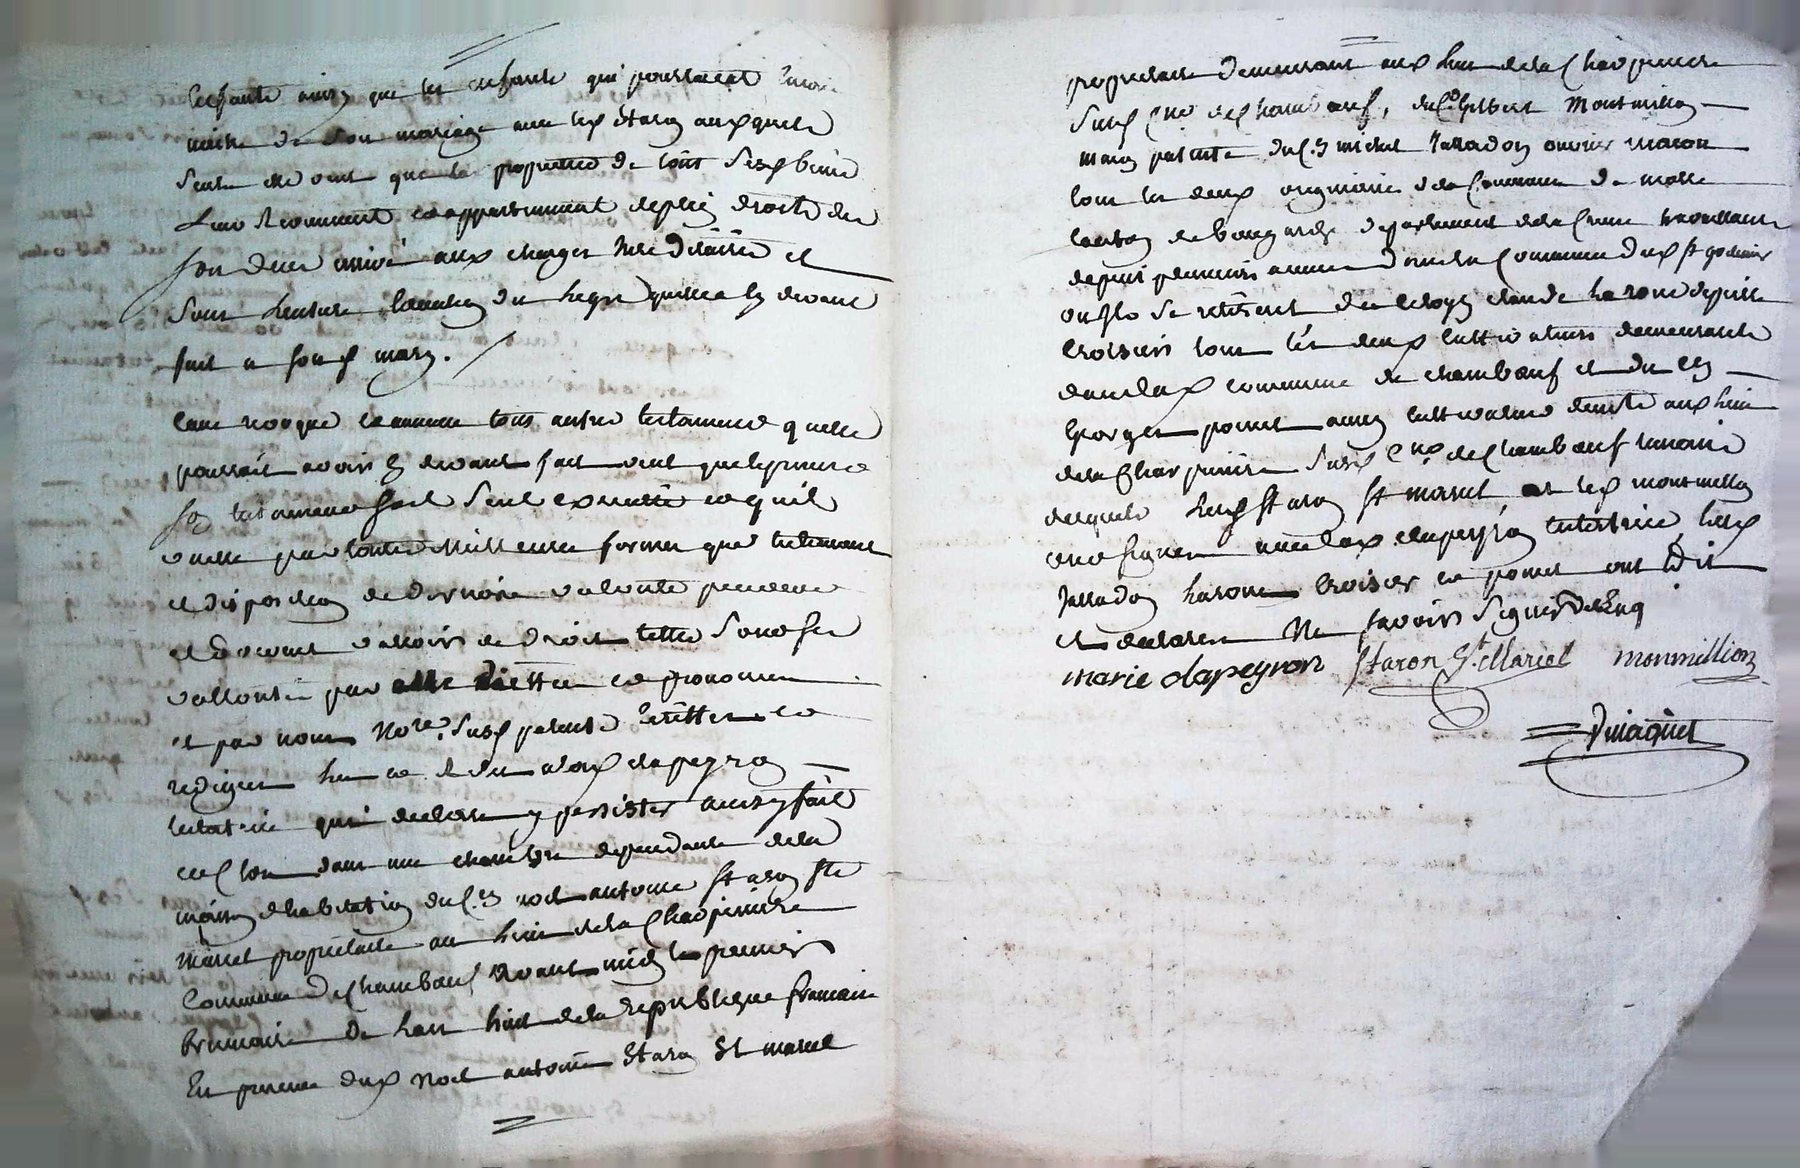 lesquels ainsy que les enfants qui pourraient
naitre de son mariage avec led Staron auxquels
seuls elle veut que la propriete de tous sesd biens
appartiennent de plein droit des
son deces arrivé aux charges hereditaires et
sous la du legs quelle a cy devant
fait a sond mary.
casse revoque et annulle tous autres testaments quelle
pourrait avoir cy devant fait veut que le present
son testament soit seul executé et quil
vaille par toutes meilleures formes que testament
et disposition de derniere volonté peuvent
et doivent valloir de droit telle sont ses
vollontés par elle dictée et prononcée
et par nous Nore. susd present ecrittes et
redigées lue et relue a lad dapeyron
testatrice qui declare y persister ainsy fait
dans une chambre dependante de la
maison dhabitation du Cen noel antoine Staron St
Marcel proprietaire au lieu de la Charpiniere
Commune de Chambœuf avant midy le premier
Brumaire de lan huit de la republique francaise
En presence dud Noel antoine Staron St marcel
proprietaire demeurant aux lieu de la Charpiniere
susd Cne de Chambœuf, du Cen Gilbert Montmillion
maçon patenté du Cen michel Jalladon ouvrier maçon
tous les deux originaires de la Commune de
canton de departement de la Creuse travaillants
depuis plusieurs années dans la Commune dud St galmier
ou ils se retirent du citoyen claude
Croisier tous les deux cultivateurs demeurants
dans lad commune de chambœuf et du Cen
Georges poinet aussy cultivateur demt aux lieu
de la Charpiniere susd Cne de Chambœuf temoins
desquels led Staron St marcel et led montmillion
ont signés avec lad dapeyron testatrice lesd
Jalladon Croisier et poinet ont dit
et declarés ne savoir signer de enq
marie dapeyron Staron St. Marcel monmillion